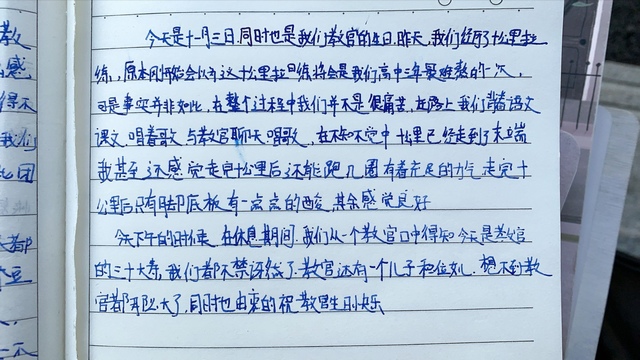 教
今天是十一月三日,同时也是我们教官的生日,昨天,我们经历了十公里拉
感
练,原本刚开始会以为这十公里拉练将会是我们高中三年最难熬的一次
得不
可是事实并非如此,在整个过程中我们并不是很痛苦,在路上我们背着语文
我们
课文,唱着歌,与教官聊天唱歌,在不知不觉中十公里已经走到了末端
团
我甚至还感觉走完十公里后还能跑几圈有着充足的力气走完十
公里后只有脚底板有一点点的酸,其余感觉良好
今天下午的时候,在休息期间,我们从一个教官口中得知今天是教官
都
的三十大寿,我们都不禁讶然了教官还有一个儿子和一位女儿.想不到教
官都那么大了,同时也由衷的祝教官生日快乐